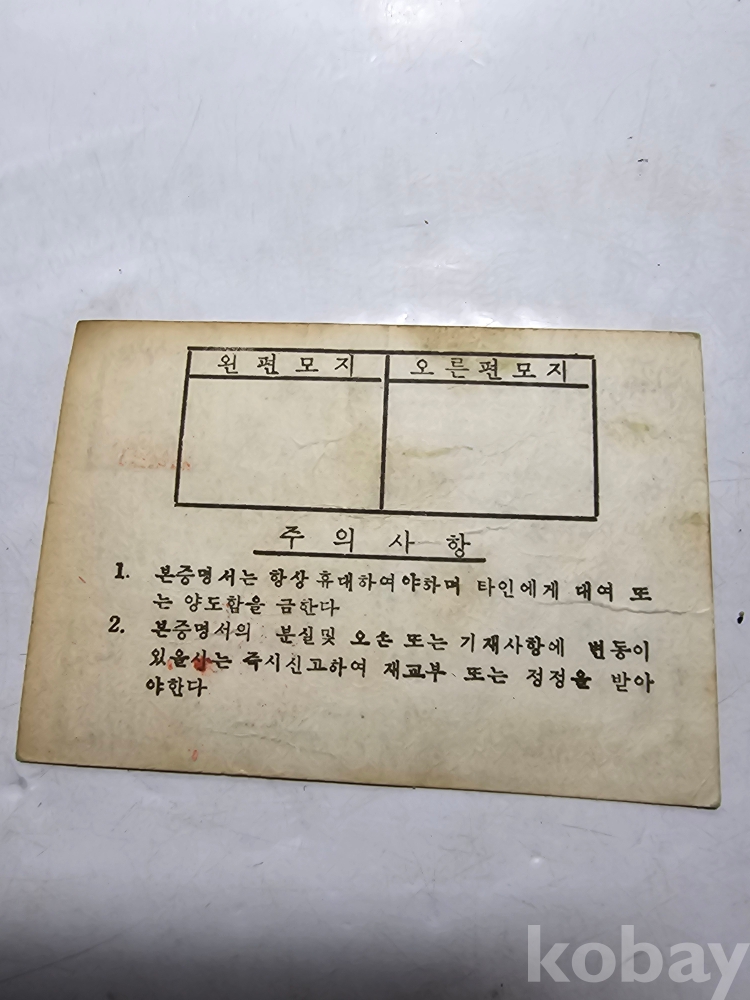 왼편모지 오른편모지
주의사항
1. 본증명서는 항상 휴대하여야하며 타인에게 대여 또
는 양도함을 금한다
2. 본증명서의 분실및 오손 또는 기재사항에 변동이
있을시는 즉시신고하여 재교부 또는 정정을 받아
야한다
kobay